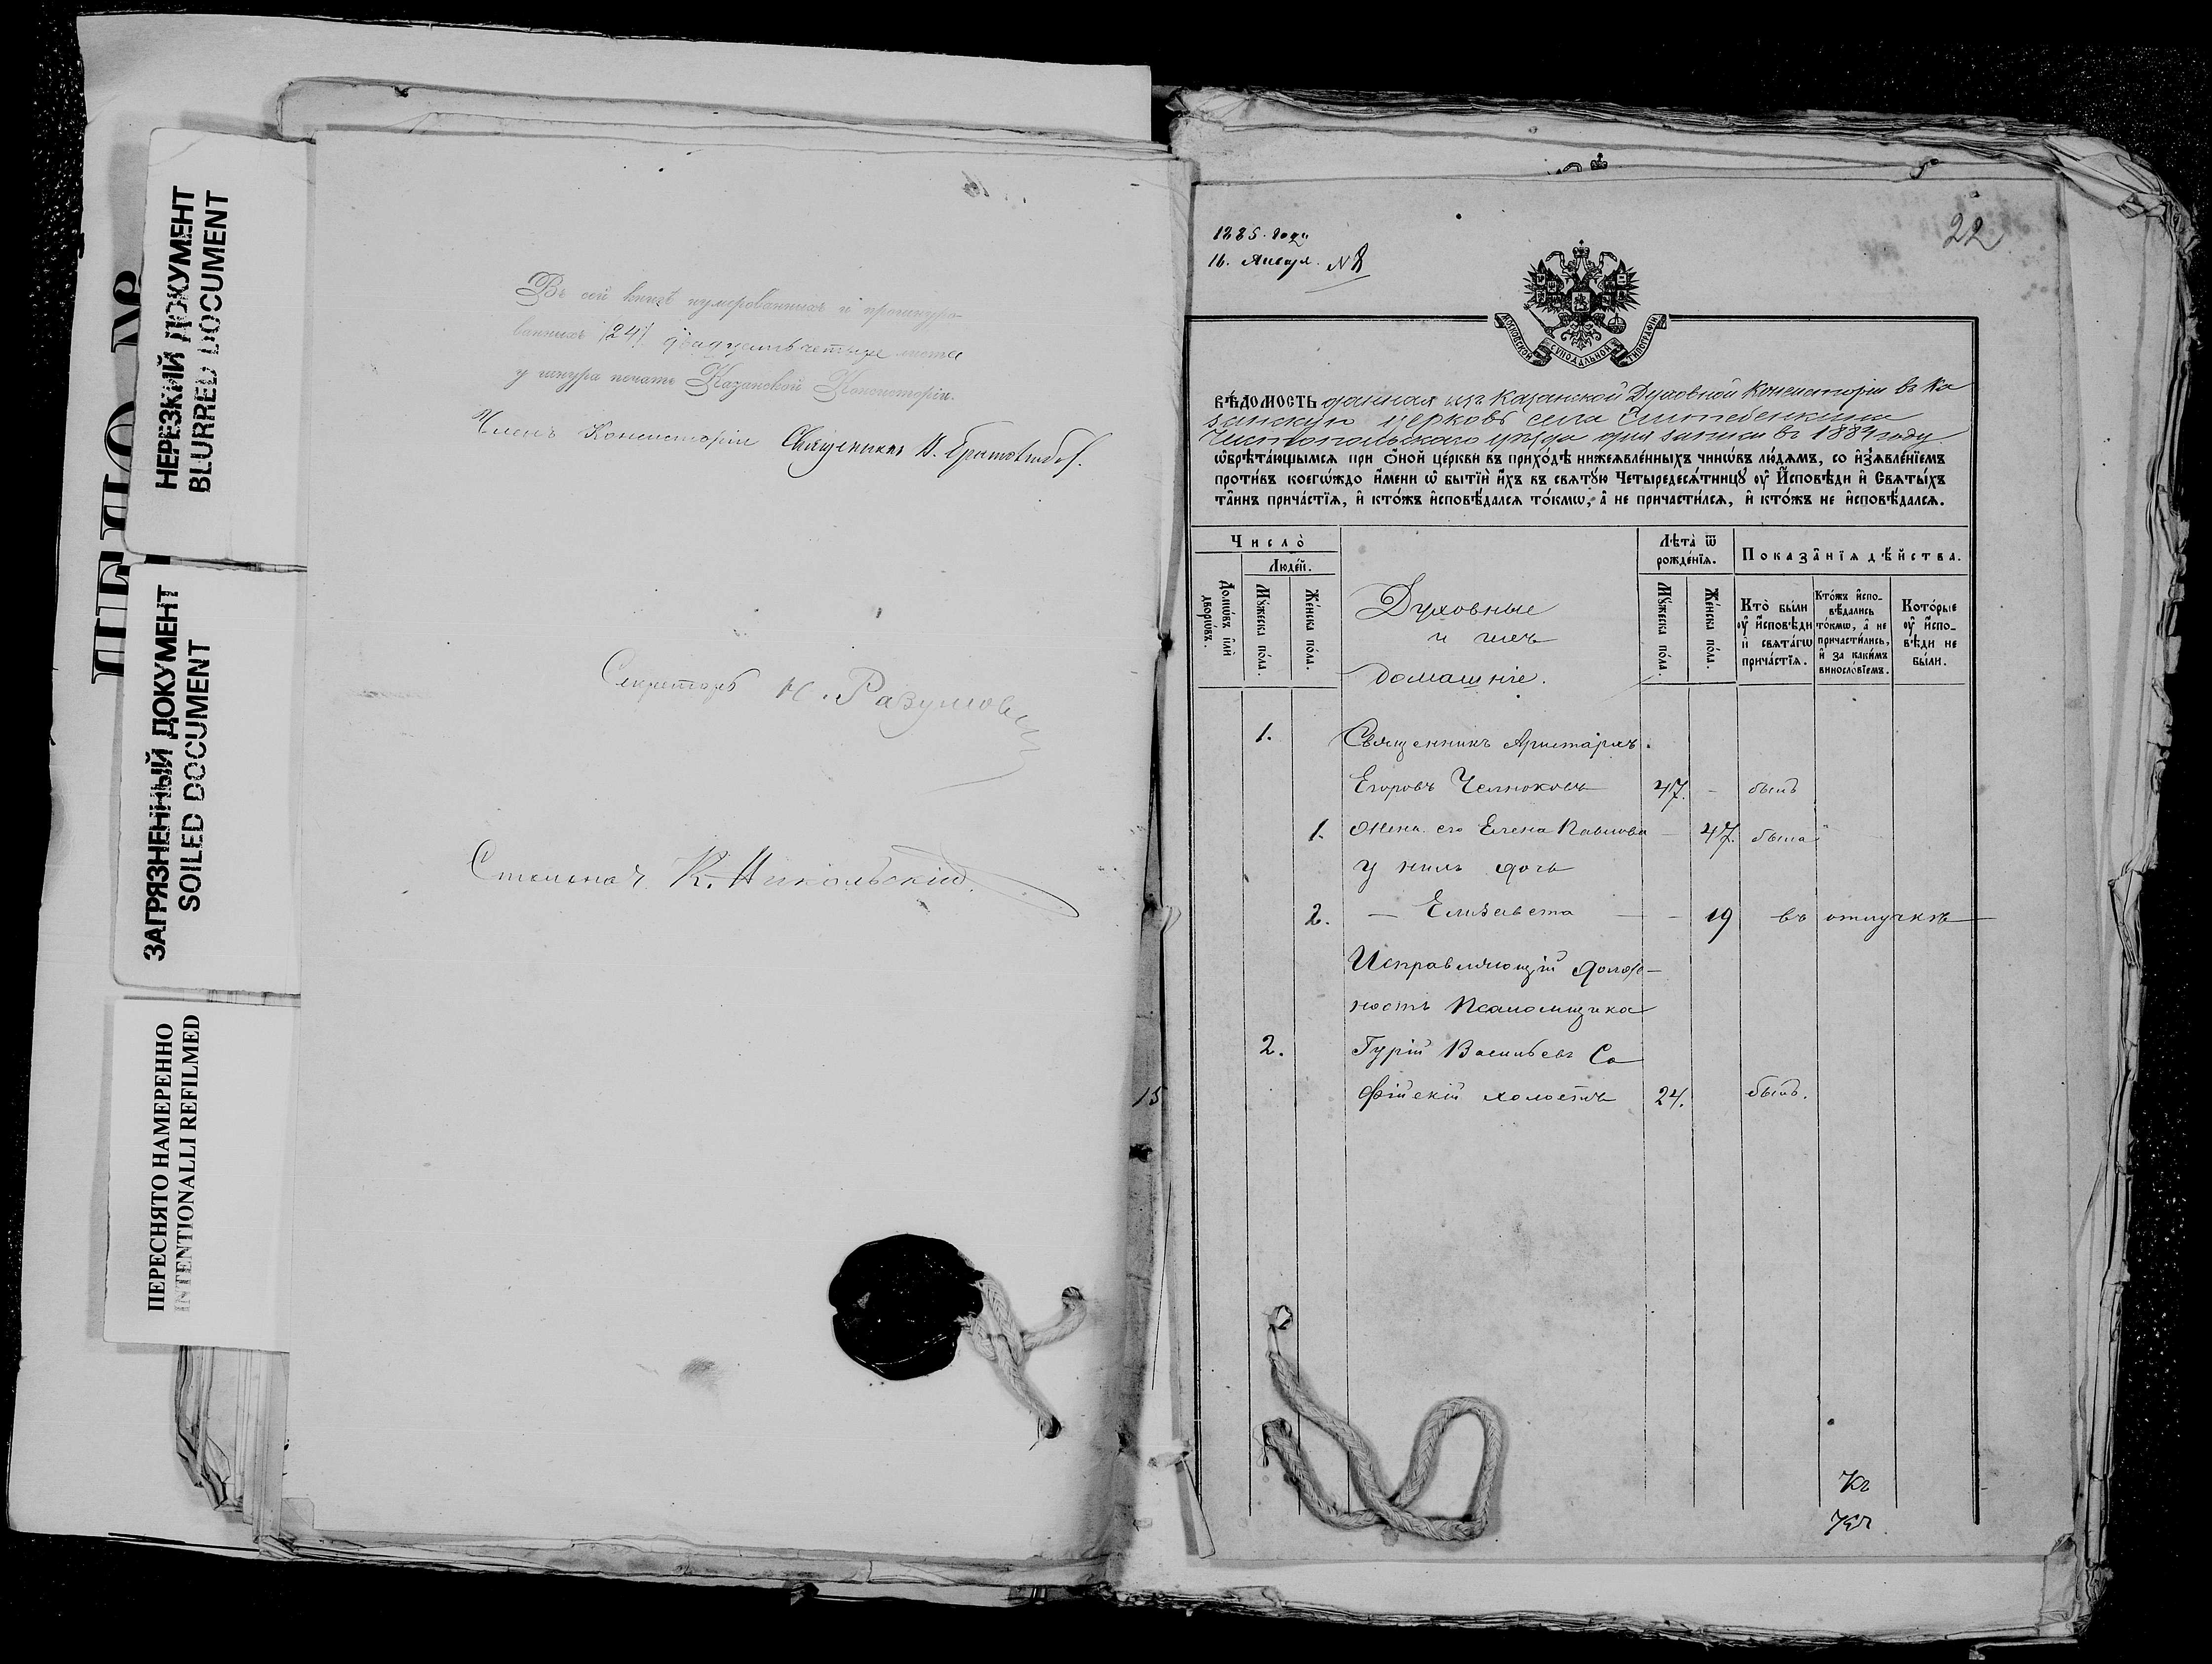 ДЕЛО №
НЕРЕЗКИЙ ДОКУМЕНТ
BLURRED DOCUMENT
ЗАГРЯЗНЕННЫЙ ДОКУМЕНТ
SOILED DOCUMENT
ПЕРЕСНЯТО НАМЕРЕННО
INTENTIONALLI REFILMED
Въ сей книгѣ нумерованныхъ и прошнуро-
ванныхъ /24/ двадцать четыре листа
у шнура печать Казанской Консисторіи.
Членъ Консисторіи Священникъ
Секретарь Н. Разумов
Столонач. К. Никольскій.
15
22
1885. года
16. Января. N 8
МОСКОВСКОЙ СѴНОДАЛЬНОЙ ТИПОГРАФІИ
ВѢДОМОСТЬ данная изъ Казанской Духовной Консисторіи въ Ка
занскую церковь села
Чистопольскаго уѣзда для записи въ 1884 году
ѡ҆брѣта́ющымсѧ при О҆́ной це́ркви въ прихо́дѣ нижеѧвле́нныхъ чинѡ́въ лю́дѧмъ, со и҆зъѧвле́нїемъ
проти́въ коегѡ́ждо и҆́мени ѡ҆ бытїи̑ и҆́хъ въ свѧту́ю Четыредесѧ́тницу ᲂу҆ И҆́сповѣди и҆ Свѧты́хъ
та́инъ прича́стїѧ, и҆ кто́жъ и҆сповѣ́далсѧ то́кмѡ, а҆ не причасти́лсѧ, и҆ кто́жъ не и҆сповѣ́далсѧ.
Число̀
Люде́й.
Домѡ́въ и҆лѝ дворѡ́въ.
Му́жеска по́ла.
Же́нска по́ла.
Духовные
и ихъ
домашніе.
Лѣта̀ ѿ рожде́нїѧ.
Му́жеска по́ла.
Же́нска по́ла.
Показа̑нїѧ дѣ́йства.
Кто̀ бы́ли ᲂу҆ и҆́сповѣди и҆ свѧта́гѡ прича́стїѧ.
Кто́жъ и҆спо-вѣдались то́кмѡ, а҆ не причасти́лись, и҆ за каки́мъ винослові́емъ.
Кото́рые ᲂу҆ и҆́спо-вѣди не бы́ли.
1. Священникъ Аристархъ
Егоровъ Челноковъ 47. - былъ
1. Жена его Елена Павлова — 47. была
у нихъ дочь
2. — Елизавета — - 19 въ отлучкѣ
Исправляющій долж-
ность Псаломщика
2. Гурій Васильевъ Со
фійскій холостъ 24. былъ.